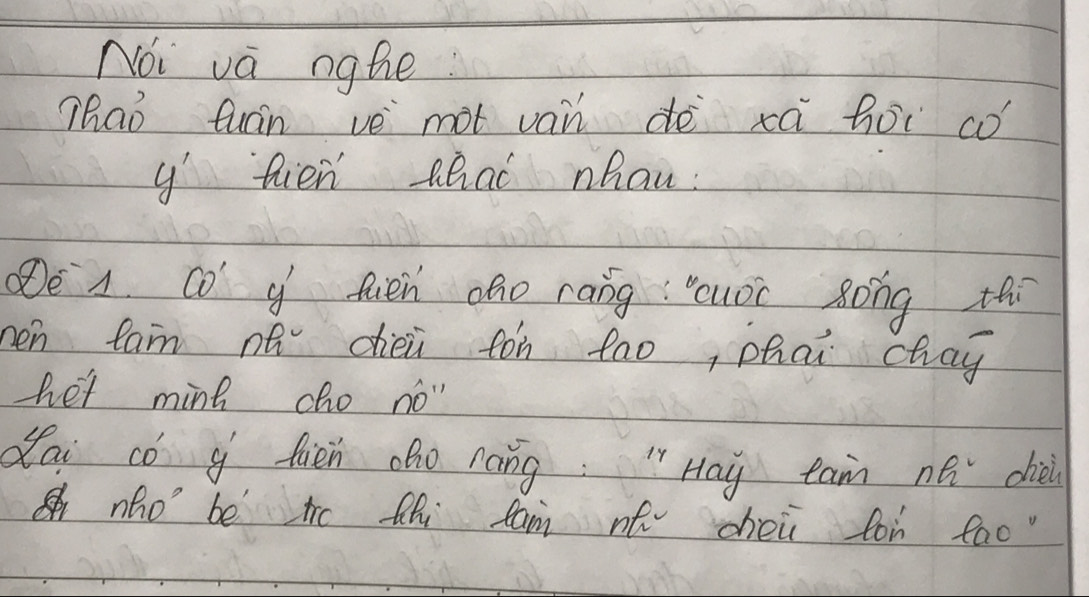 Nói và nghe :
Thảo luận về một vấn đề xã hội có
ý kiến khác nhau :
Đề 1. Có ý kiến cho rằng : "cuộc sống thì
nên làm nh~ điều lớn lao , phải cháy
hết mình cho nó"
Lại có ý kiến cho rằng : "Hãy làm nh~ điều
nhỏ bé trc khi làm nh~ điều lớn lao"